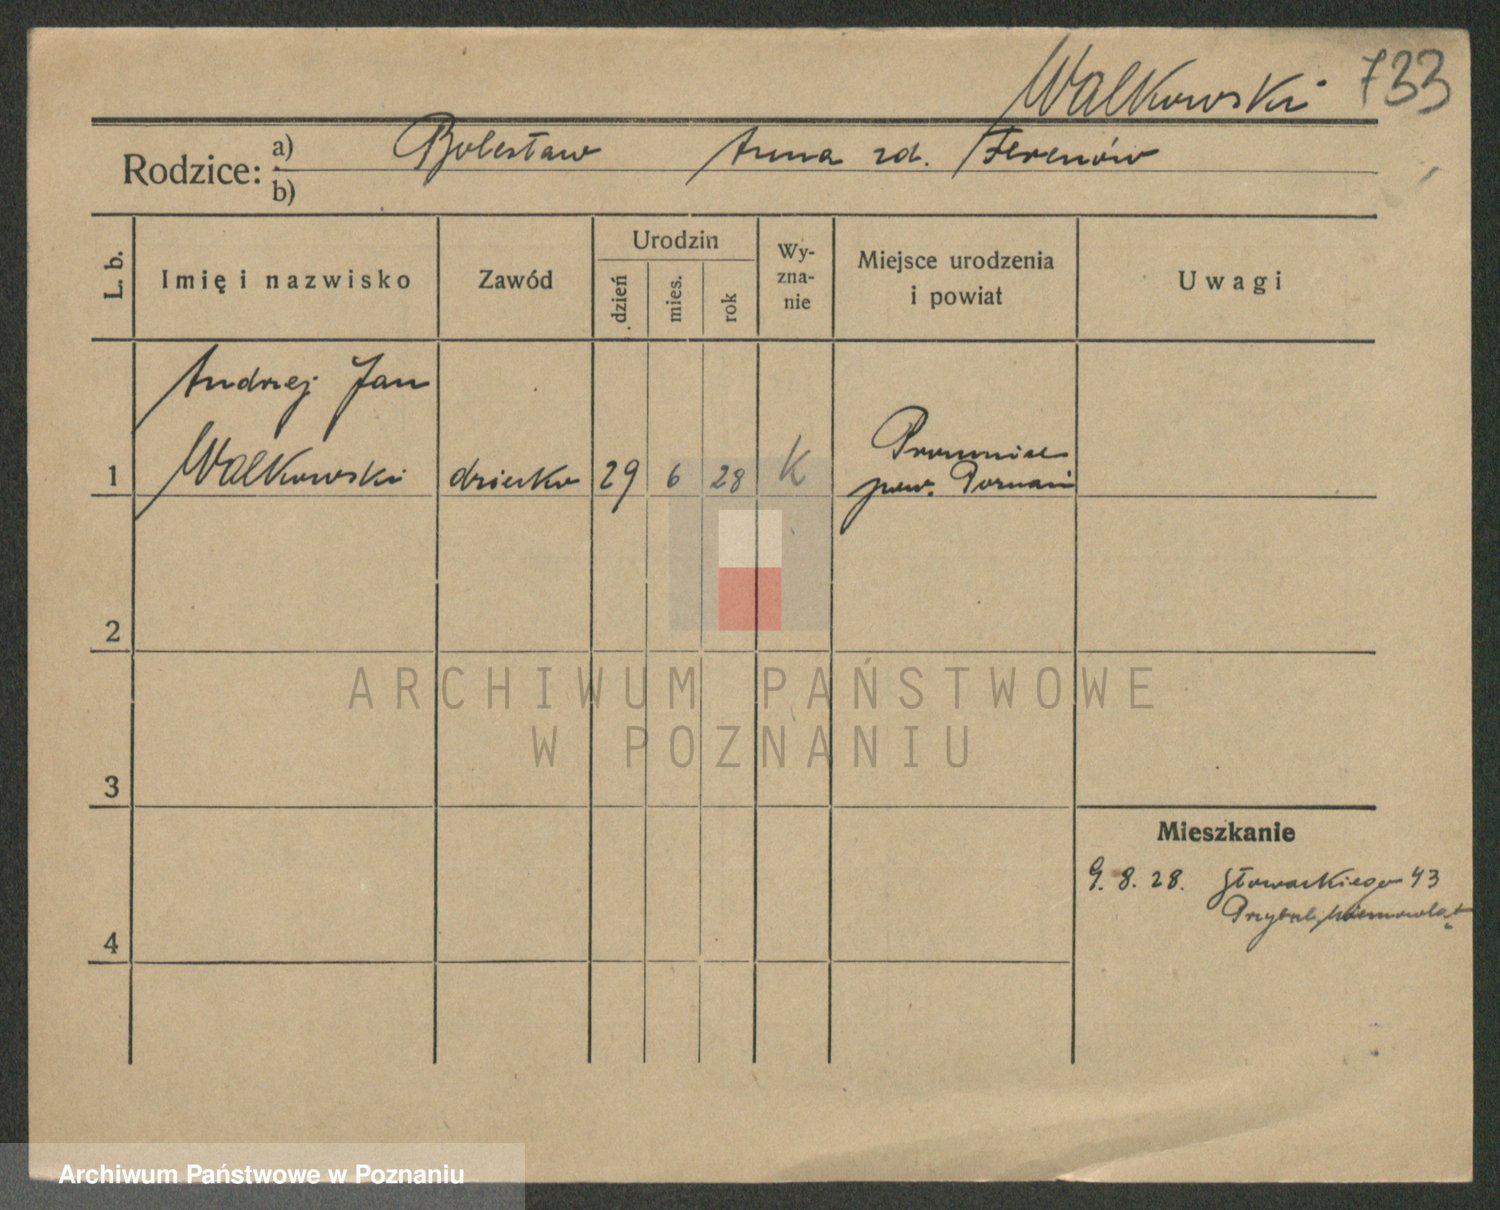 Walkowski 733
Rodzice: a) Bolesław Anna zd. Ferenów
b)
L. b. Imię i nazwisko Zawód Urodzin dzień mies. rok Wyznanie Miejsce urodzenia i powiat Uwagi
Andrzej Jan
1 Walkowski dziecko 29 6 28 K
pow. Poznań
2
3
4
Mieszkanie
9. 8. 28. Słowackiego 43
ARCHIWUM PAŃSTWOWE
W POZNANIU
Archiwum Państwowe w Poznaniu